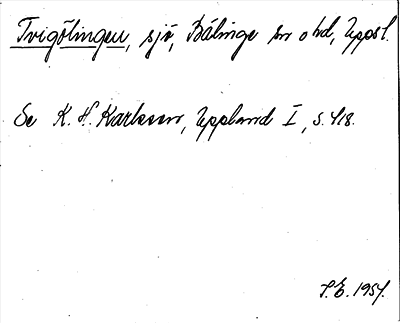 Tvigölingen, sjö, Bälinge sn o hd, Uppsl.
Se K. H. Karlsson, Uppland I, s. 418.
S.E. 1954.